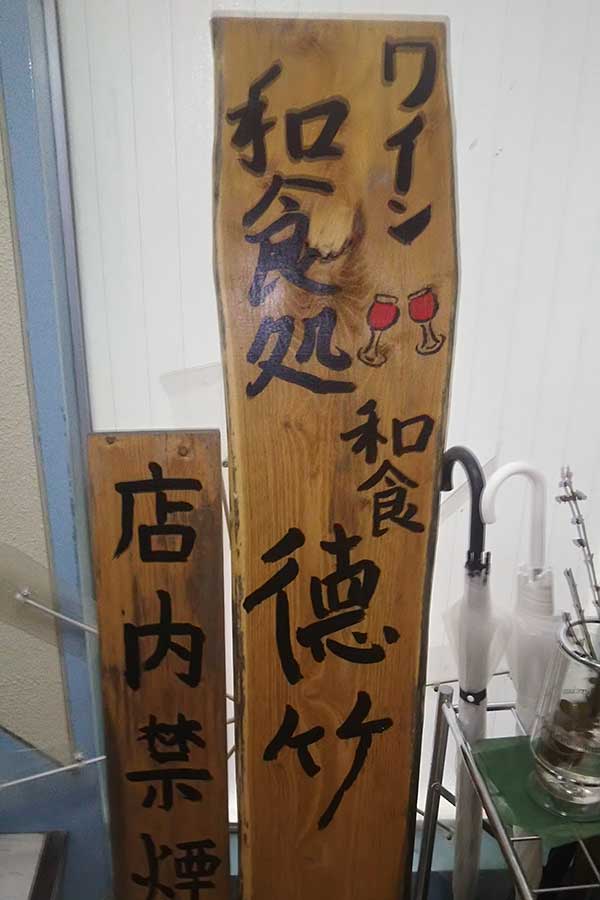 ワイン
和食
和食処
德竹
店内禁煙